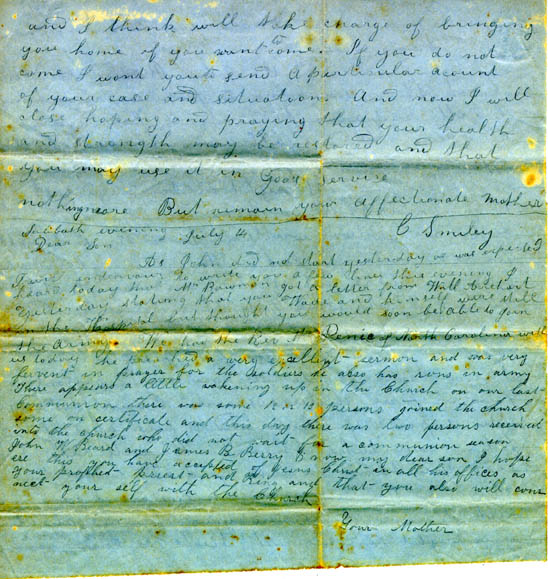 and I think will take charge of bringing
you home if you want to come. If you do not
come I wont you to send a particular acount
of your case and situation. And now I will
close hoping and praying that your health
and strength may be restored and that
you may use it in Gods service
nothing more But remain your affectionate Mother
C Smiley
Sabbath evening July 14
Dear Son
As John did not start yesterday as was expected
I will endeavour to write you a few lines this evening I
heard today that Mr got a letter from Will
yesterday stating that you and himself were still
in the Hospital but thought you would soon be able to join
the Army. We had the Rev. Mr of North Carolina with
us today he preached a very excellent sermon and was very
fervent in prayer for the soldiers he also has sons in army
There appears a little wakening up in the Church on our last
communion there was some persons joined the church
some on certificate and this day there was two persons received
into the church who did not wait for a communion season
John Y Beard and James B Berry & now my dear son I hope
ere this you have accepted of Jesus Christ in all his offices as
your prophet Priest and King and that you also will con
nect your self with the Church
Your Mother